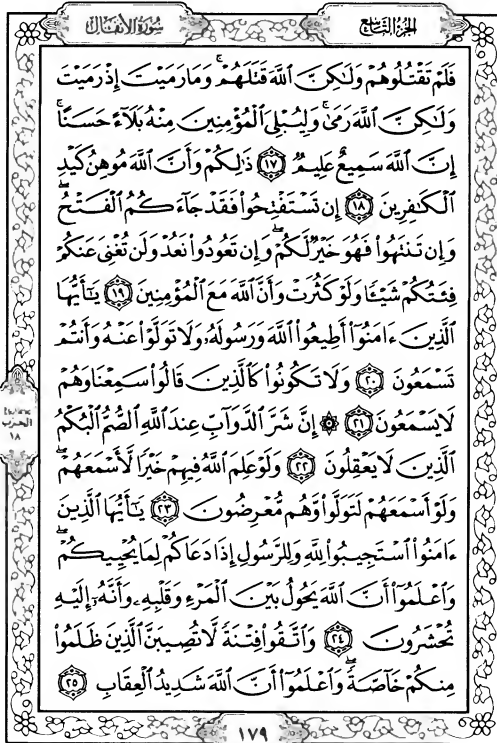 سُورَةُ الأَنفَال
الجُزءُ التَّاسِعُ
فَلَمْ تَقْتُلُوهُمْ وَلَٰكِنَّ ٱللَّهَ قَتَلَهُمْ ۚ وَمَا رَمَيْتَ إِذْ رَمَيْتَ
وَلَٰكِنَّ ٱللَّهَ رَمَىٰ ۚ وَلِيُبْلِىَ ٱلْمُؤْمِنِينَ مِنْهُ بَلَآءً حَسَنًا ۚ
إِنَّ ٱللَّهَ سَمِيعٌ عَلِيمٌ ١٧ ذَٰلِكُمْ وَأَنَّ ٱللَّهَ مُوهِنُ كَيْدِ
ٱلْكَٰفِرِينَ ١٨ إِن تَسْتَفْتِحُوا۟ فَقَدْ جَآءَكُمُ ٱلْفَتْحُ ۖ
وَإِن تَنتَهُوا۟ فَهُوَ خَيْرٌ لَّكُمْ ۖ وَإِن تَعُودُوا۟ نَعُدْ وَلَن تُغْنِىَ عَنكُمْ
فِئَتُكُمْ شَيْـًٔا وَلَوْ كَثُرَتْ وَأَنَّ ٱللَّهَ مَعَ ٱلْمُؤْمِنِينَ ١٩ يَٰٓأَيُّهَا
ٱلَّذِينَ ءَامَنُوٓا۟ أَطِيعُوا۟ ٱللَّهَ وَرَسُولَهُۥ وَلَا تَوَلَّوْا۟ عَنْهُ وَأَنتُمْ
تَسْمَعُونَ ٢٠ وَلَا تَكُونُوا۟ كَٱلَّذِينَ قَالُوا۟ سَمِعْنَا وَهُمْ
لَا يَسْمَعُونَ ٢١ ۞ إِنَّ شَرَّ ٱلدَّوَآبِّ عِندَ ٱللَّهِ ٱلصُّمُّ ٱلْبُكْمُ
ٱلَّذِينَ لَا يَعْقِلُونَ ٢٢ وَلَوْ عَلِمَ ٱللَّهُ فِيهِمْ خَيْرًا لَّأَسْمَعَهُمْ ۖ
وَلَوْ أَسْمَعَهُمْ لَتَوَلَّوا۟ وَّهُم مُّعْرِضُونَ ٢٣ يَٰٓأَيُّهَا ٱلَّذِينَ
ءَامَنُوا۟ ٱسْتَجِيبُوا۟ لِلَّهِ وَلِلرَّسُولِ إِذَا دَعَاكُمْ لِمَا يُحْيِيكُمْ ۖ
وَٱعْلَمُوٓا۟ أَنَّ ٱللَّهَ يَحُولُ بَيْنَ ٱلْمَرْءِ وَقَلْبِهِۦ وَأَنَّهُۥٓ إِلَيْهِ
تُحْشَرُونَ ٢٤ وَٱتَّقُوا۟ فِتْنَةً لَّا تُصِيبَنَّ ٱلَّذِينَ ظَلَمُوا۟
مِنكُمْ خَآصَّةً ۖ وَٱعْلَمُوٓا۟ أَنَّ ٱللَّهَ شَدِيدُ ٱلْعِقَابِ ٢٥
الحزب
١٨
١٧٩